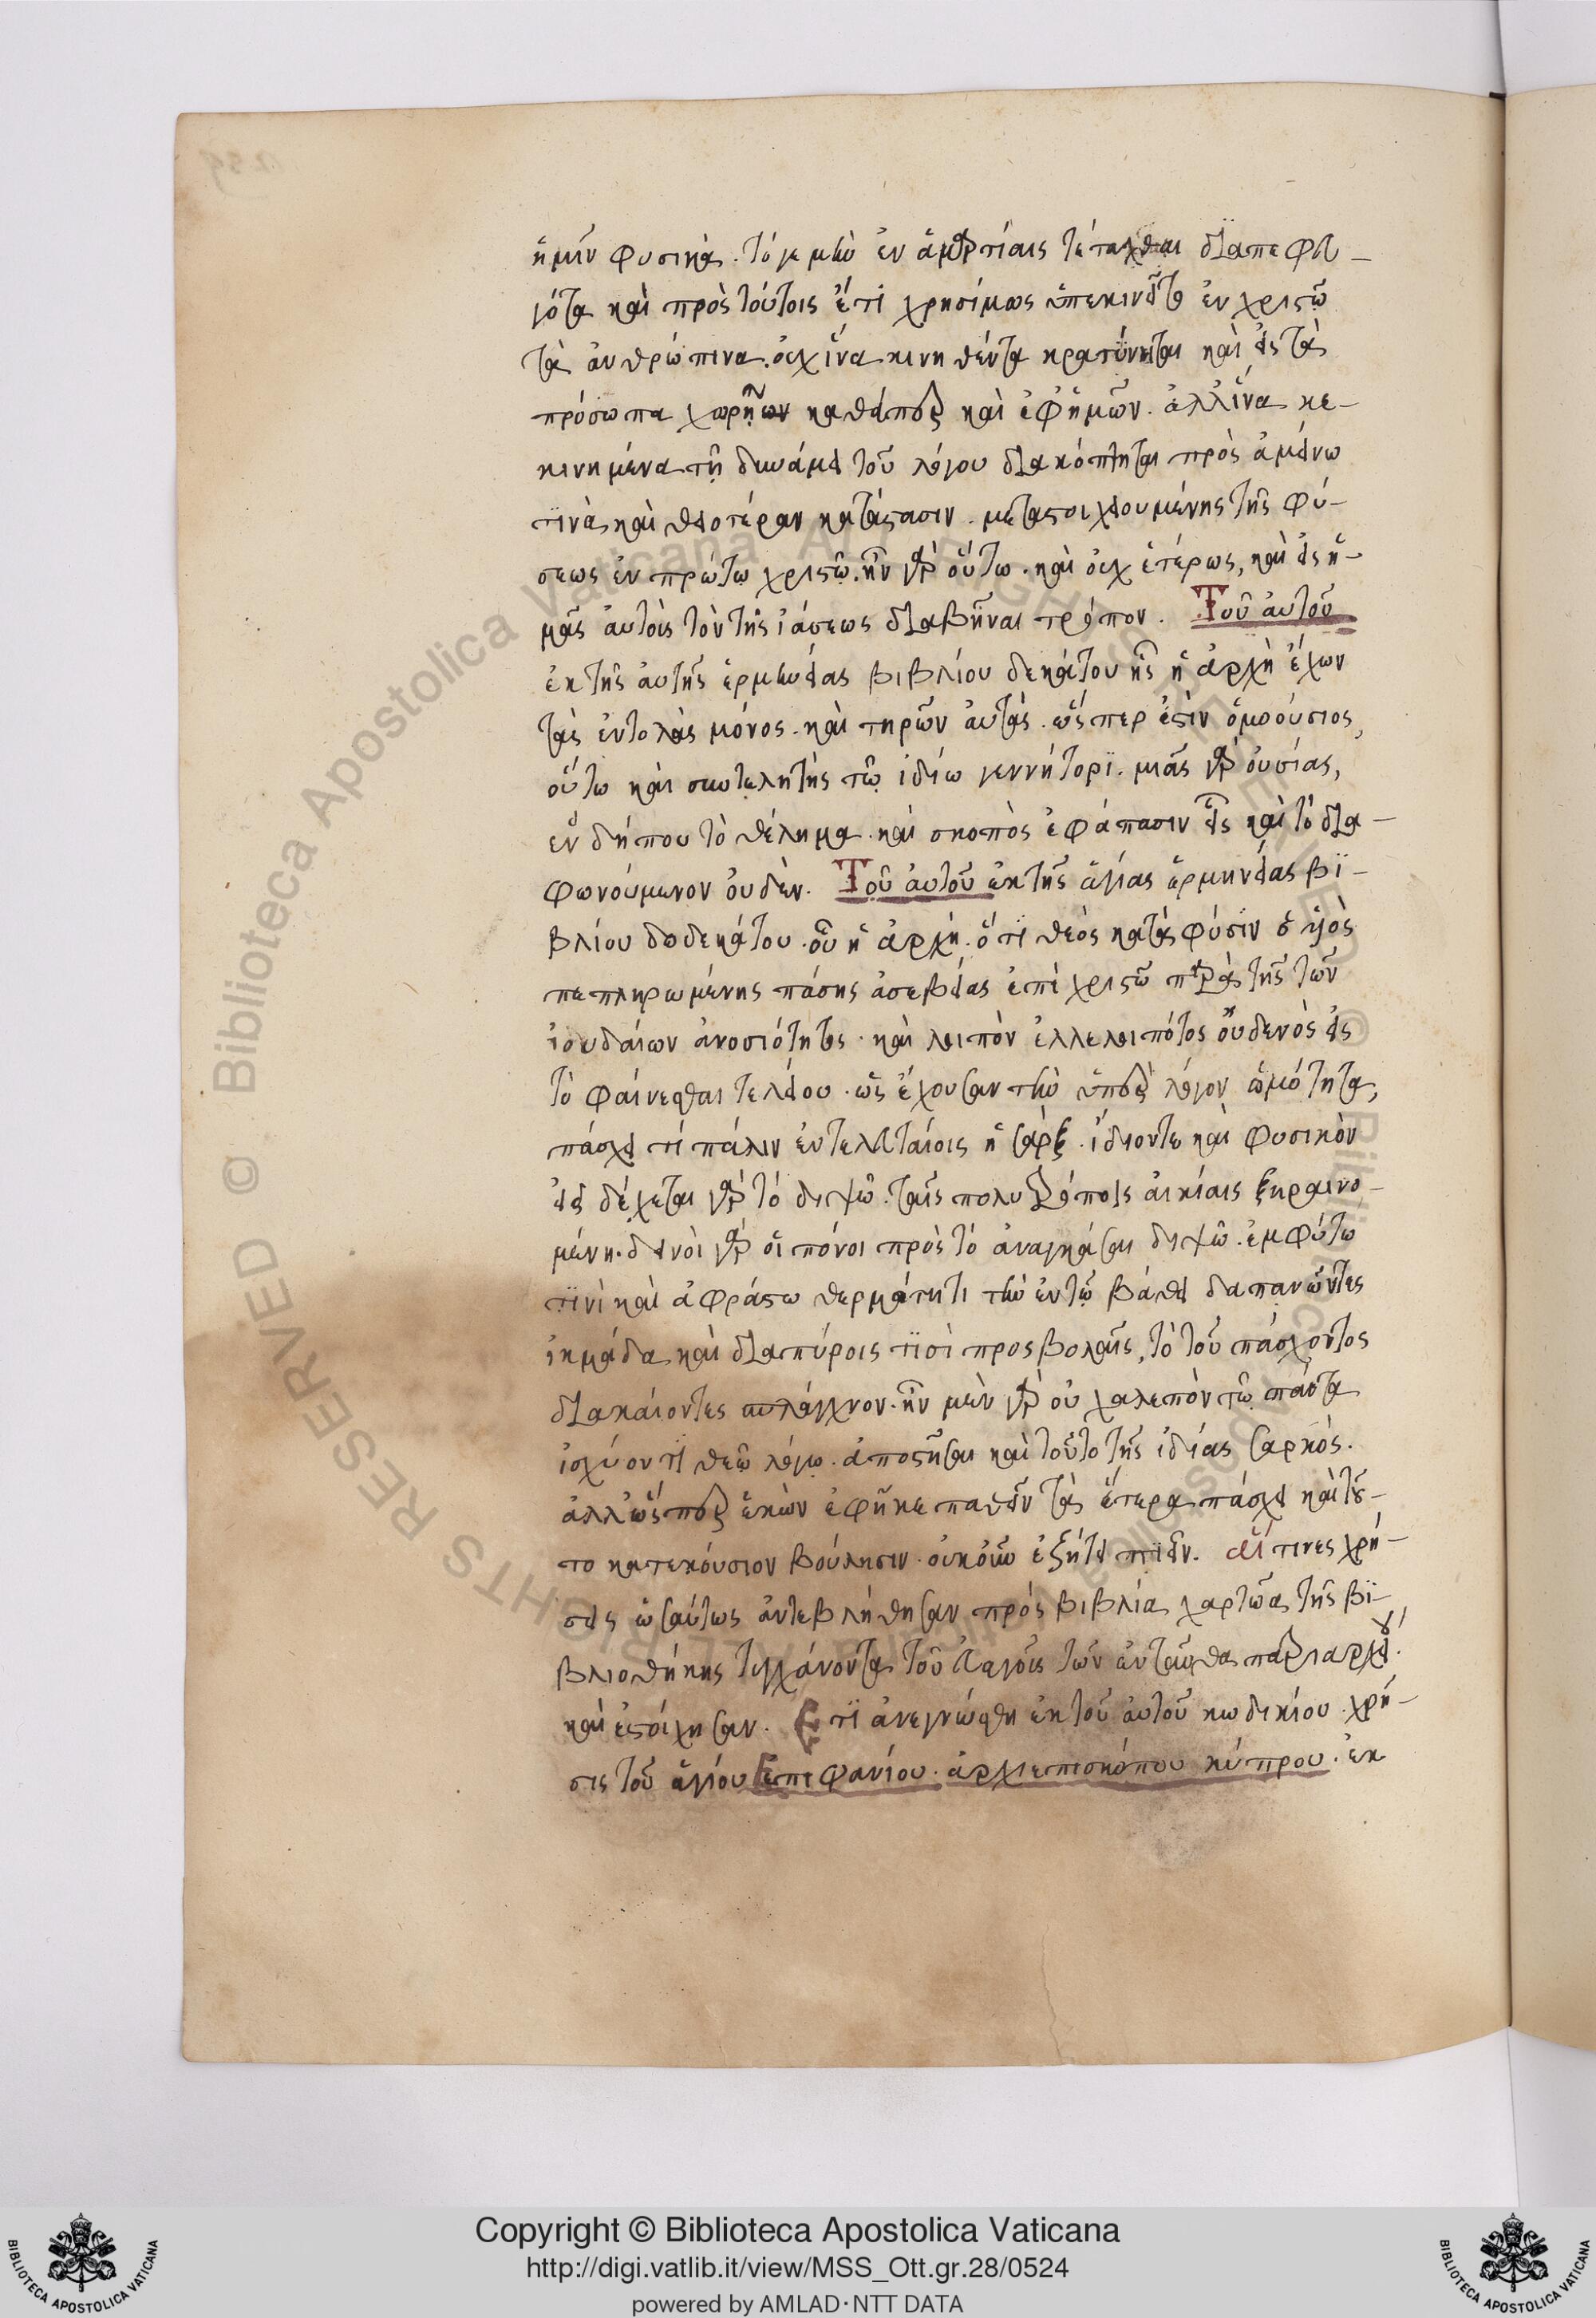 ἡμῖν φυσικά. τό γε μὴν ἐν ἁμαρτίαις τετάχθαι διαπεφευ-
γότα καὶ πρὸς τούτοις ἔτι χρησίμως ὑπεκινεῖτο ἐν χριστῷ
τὰ ἀνθρώπινα. οὐχ ἵνα κινηθέντα κρατύνηται καὶ εἰς τὰ
πρόσωπα χωρῆ καθάπερ καὶ ἐφ ἡμῶν. ἀλλ ἵνα κε-
κινημένα τῇ δυνάμει τοῦ λόγου διακόπτηται πρὸς ἀμείνω
τινὰ καὶ θειοτέραν κατάστασιν. μεταστοιχειουμένης τῆς φύ-
σεως ἐν πρώτῳ χριστῷ. ἦν γὰρ οὕτω. καὶ οὐχ ἑτέρως, καὶ εἰς ἡ-
μᾶς αὐτοὺς τὸν τῆς ἰάσεως διαβῆναι τρόπον. Τοῦ αὐτοῦ
ἐκ τῆς αὐτῆς ἑρμηνείας βιβλίου δεκάτου ἧς ἡ ἀρχὴ ἔχων
τὰς ἐντολὰς μόνος. καὶ τηρῶν αὐτάς. ὥσπερ ἐστὶν ὁμοούσιος,
οὕτω καὶ συνθελητὴς τῷ ἰδίω γεννήτορϊ. μιᾶς γὰρ οὐσίας,
ἓν δήπου τὸ θέλημα. καὶ σκοπὸς ἐφάπασιν εἷς καὶ τὸ δια-
φωνούμενον οὐδέν. Τοῦ αὐτοῦ ἐκ τῆς ἁγίας ἑρμηνείας βϊ-
βλίου δωδεκάτου. οὗ ἡ ἀρχή. ὅτι θεὸς κατὰ φύσϊν ὁ υἱὸς
πεπληρωμένης πάσης ἀσεβείας ἐπὶ χριστῷ παρὰ τῆς τῶν
ἰουδαίων ἀνοσιότητος. καὶ λοιπὸν ἐλλελοιπότος οὐδενὸς εἰς
τὸ φαίνεσθαι τελείου. ὡς ἔχουσαν τὴν ὑπὲρ λόγον ὠμότητα,
πάσχει τί πάλιν ἐν τελευταίοις ἡ σάρξ. ἴδιόν τε καὶ φυσικὸν
εἰσδέχεται γὰρ τὸ διψῶ. ταῖς πολυτρόποις αἰκίαις ξηραινο-
μένη. δεινοὶ γὰρ οἱ πόνοι πρὸς τὸ ἀναγκάσαι διψῶ. ἐμφύτω
τινὶ καὶ ἀφράστω θερμότητι τὴν ἐν τῷ βάθει δαπανῶντες
ἰκμάδα καὶ διαπύροις τισὶ προσβολαῖς, τὸ τοῦ πάσχοντος
διακαίοντες σπλάγχνον. ἦν μὲν γὰρ οὐ χαλεπὸν τῷ πάντα
ἰσχύοντϊ θεῷ λόγῳ. ἀποστῆσαι καὶ τοῦτο τῆς ἰδίας σαρκός.
ἀλλ ὥσπερ ἑκὼν ἐφῆκε παθεῖν τὰ ἕτερα πάσχει καὶ τοῦ-
το κατεκούσιον βούλησιν. οὐκοῦν ἐξήτει πιεῖν. αἵ τινες χρή-
σεις ὡσαύτως ἀντεβλήθησαν πρὸς βιβλία χαρτῶα τῆς βϊ-
βλιοθήκης τυγχάνοντα τοῦ εὐαγοῦς τῶν ἐνταῦθα πατριαρχείου.
καὶ ἐστοίχησαν. Ἔτϊ ἀνεγνώσθη ἐκ τοῦ αὐτοῦ κωδικίου. χρή-
σις τοῦ ἁγίου Ἐπιφανίου. ἀρχιεπισκόπου κύπρου. ἐκ
Copyright © Biblioteca Apostolica Vaticana
http://digi.vatlib.it/view/MSS_Ott.gr.28/0524
powered by AMLAD·NTT DATA